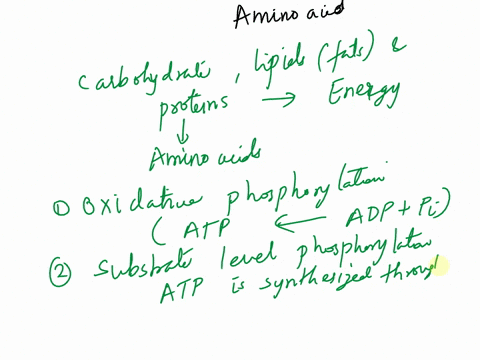 Amino acid
Carbohydrate, lipids (fats) &
proteins → Energy
↓
Amino acids
① Oxidative phosphorylation
( ATP ← ADP + Pi)
② Substrate level phosphorylation
ATP is synthesized through